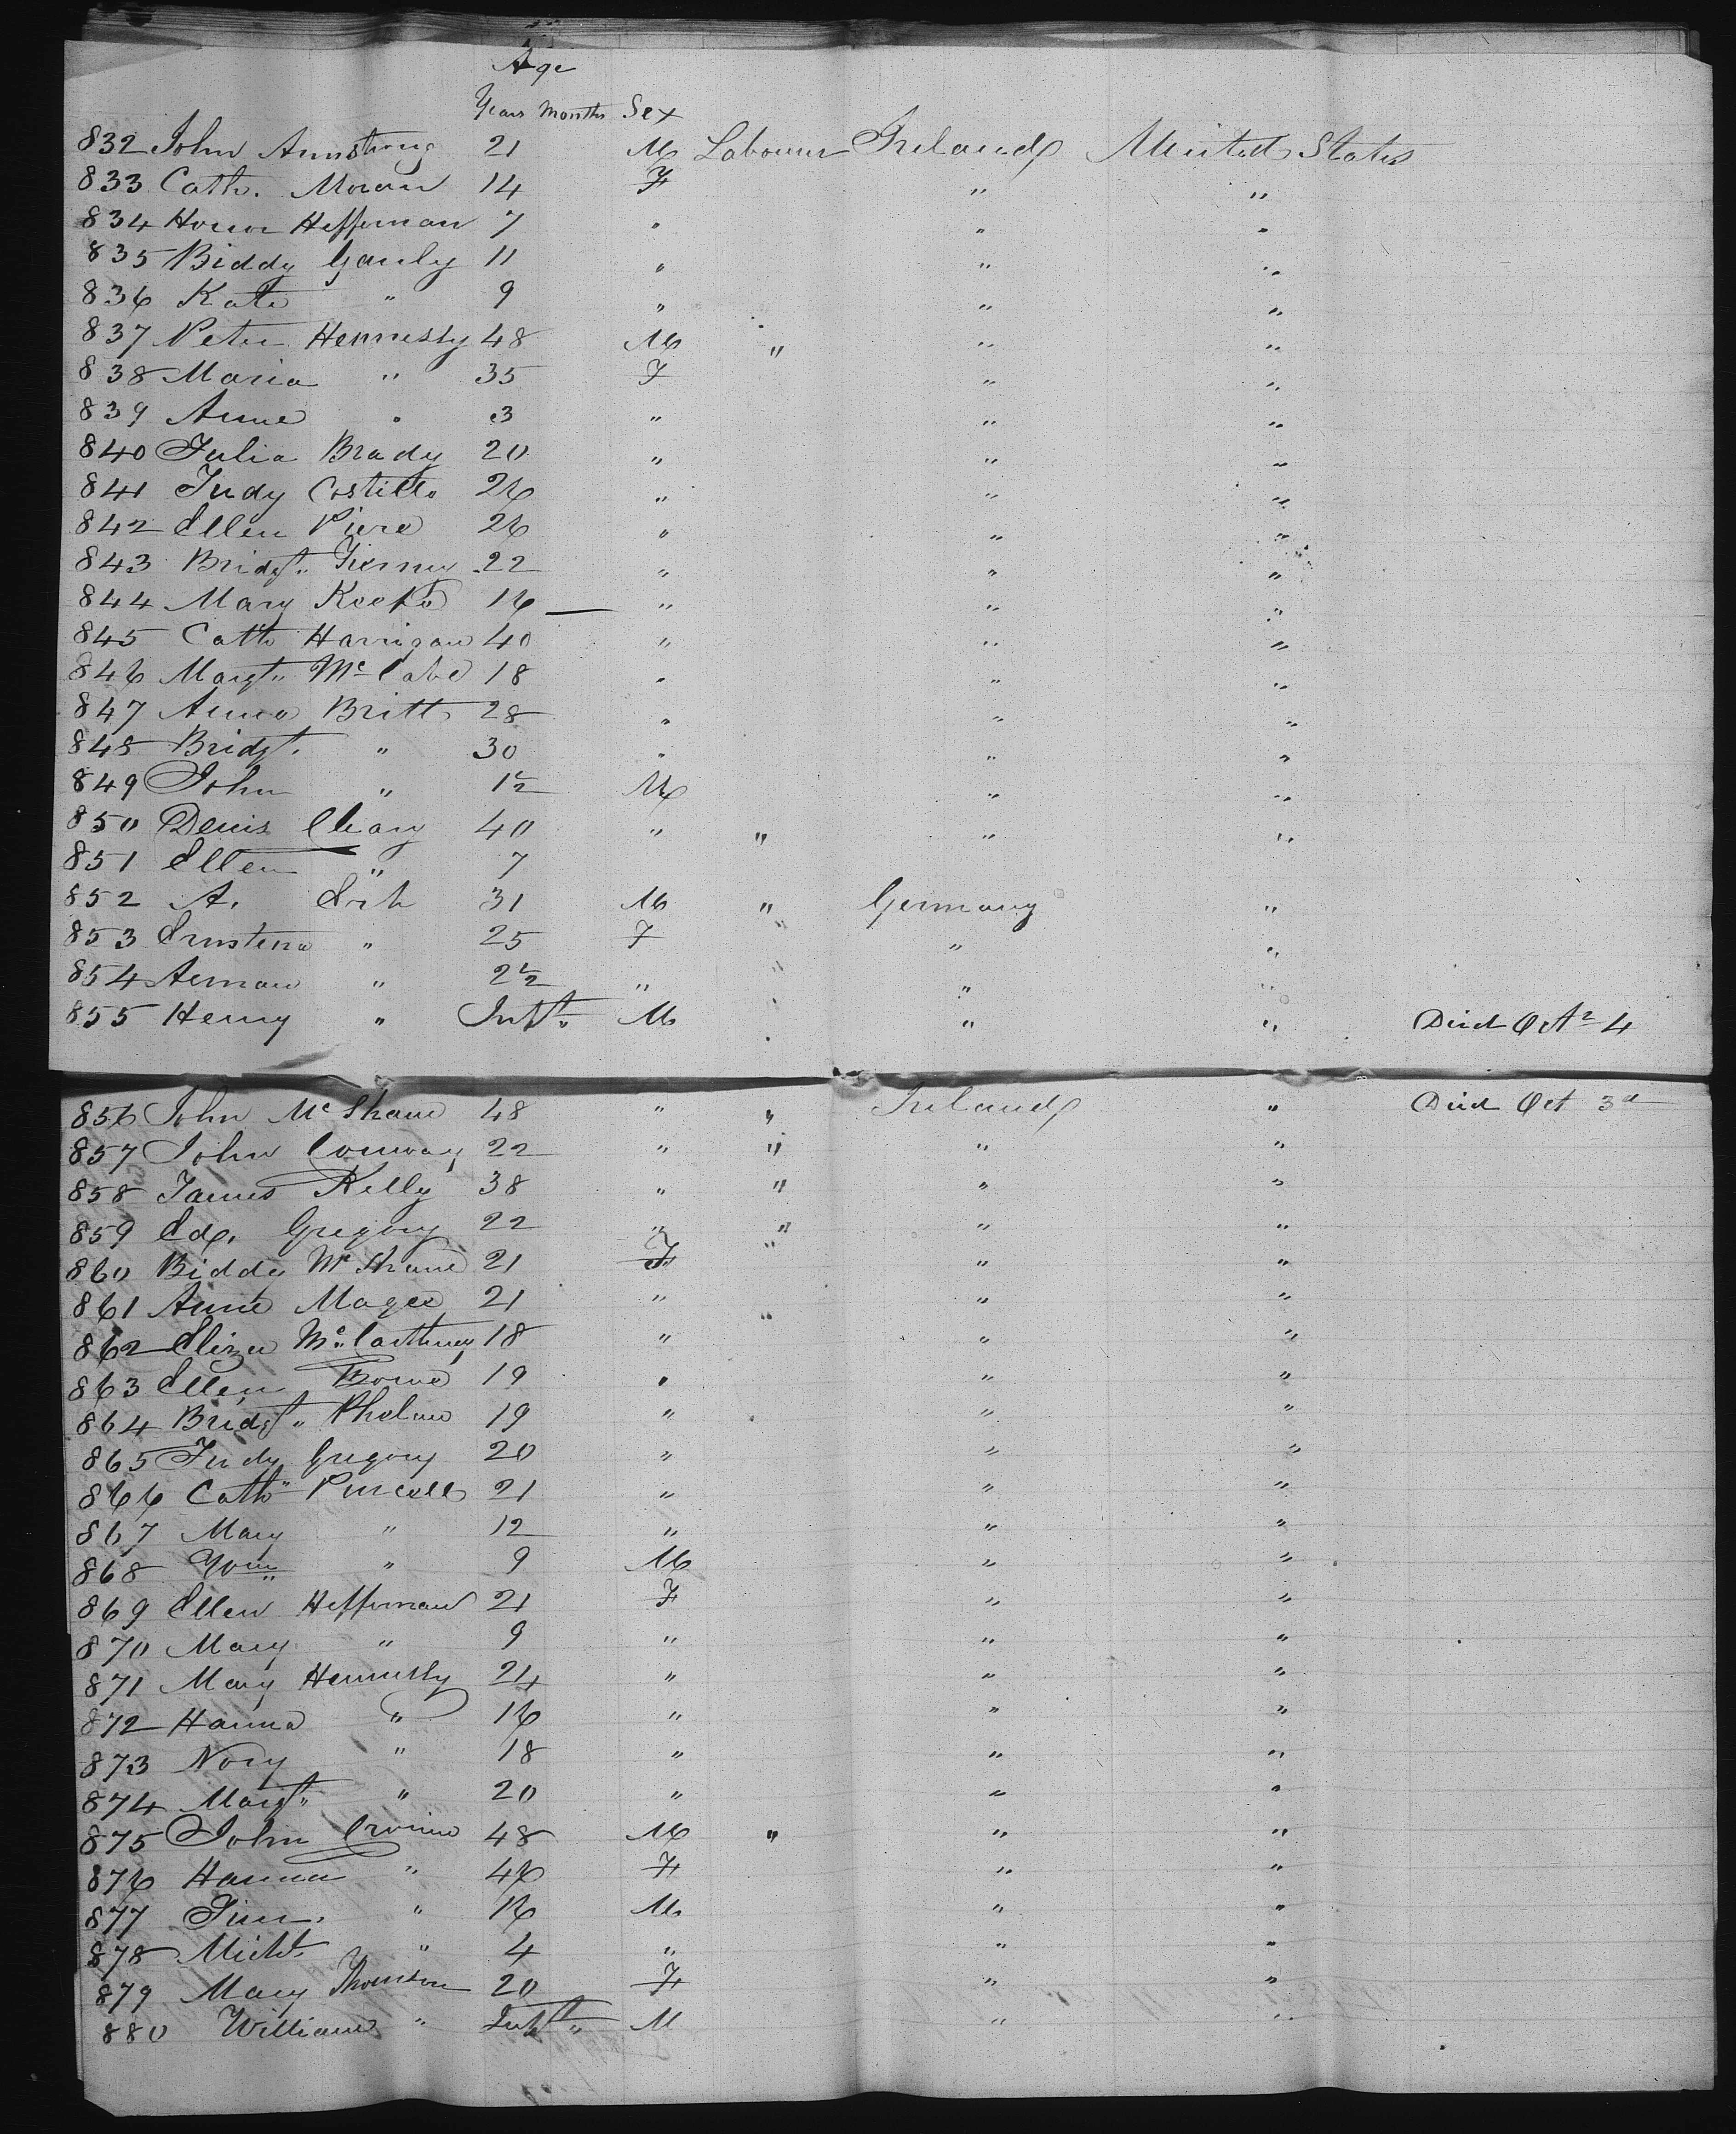 Age
Years Months Sex
832 John Armstrong 21 M Labourer Ireland United States
833 Cath. Moran 14 F " "
834 Honor Heffernan 7 " " "
835 Biddy Gauly 11 " " "
836 Kate " 9 " " "
837 Peter Hennessy 48 M " " "
838 Maria " 35 F " "
839 Anne " 3 " " "
840 Julia Brady 20 " " "
841 Judy Costillo 26 " " "
842 Ellen Piere 26 " " "
843 Bridgt. 22 " " "
844 Mary Keefe 16 — " " "
845 Cath Harrigan 40 " " "
846 Margt. McCabe 18 " " "
847 Anna Britt 28 " " "
848 Bridgt. " 30 " " "
849 John " 1½ M " "
850 Denis Cleary 40 " " " "
851 Ellen " 7
852 A. 31 M " Germany "
853 Ernstena " 25 F " " "
854 " 2½ " " " "
855 Henry " Inft. M " " Died Oct 4
856 John McShane 48 " " Ireland " Died Oct 3d
857 John Conway 22 " " " "
858 James Kelly 38 " " " "
859 Ed. Gregory 22 " " " "
860 Biddy McShane 21 F " " "
861 Anne Magee 21 " " " "
862 Eliza McCarthney 18 " " "
863 Ellen 19 " " "
864 Bridgt. Phelan 19 " " "
865 Judy Gregory 20 " " "
866 Cath Purcell 21 " " "
867 Mary " 12 " " "
868 Wm " 9 M " "
869 Ellen Heffernan 21 F " "
870 Mary " 9 " " "
871 Mary Hennessy 24 " " "
872 Hanna " 16 " " "
873 Nory " 18 " " "
874 Margt. " 20 " " "
875 John 48 M " " "
876 Hanna " 46 F " "
877 " 16 M " "
878 Michl. " 4 " " "
879 Mary Thomson 20 F " "
880 William " Inft. M " "